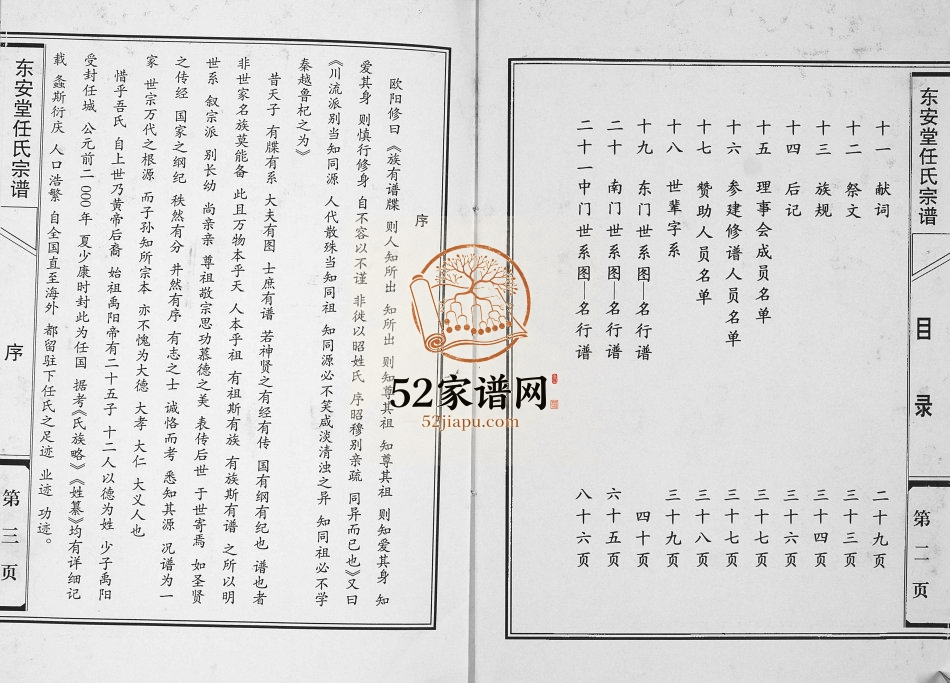 东安堂任氏宗谱
目录
第二页
十一 献词 二十九页
十二 祭文 三十三页
十三 族规 三十四页
十四 后记 三十六页
十五 理事会成员名单 三十七页
十六 参建修谱人员名单 三十七页
十七 赞助人员名单 三十八页
十八 世辈字系 三十九页
十九 东门世系图—名行谱 四十页
二十 南门世系图—名行谱 六十五页
二十一中门世系图—名行谱 八十六页
序
欧阳修曰《族有谱牒 则人知所出 知所出 则知尊其祖 知尊其祖 则知爱其身 知
爱其身 则慎行修身 自不容以不谨 非徙以昭姓氏 序昭穆别亲疏 同异而已也》又曰
《川流派别当知同源 人代散殊当知同祖 知同源必不笑咸淡清浊之异 知同祖必不学
秦越鲁杞之为》
昔天子 有牒有系 大夫有图 士庶有谱 若神贤之有经有传 国有纲有纪也 谱也者
非世家名族莫能备 此且万物本乎天 人本乎祖 有祖斯有族 有族斯有谱 之所以明
世系 叙宗派 别长幼 尚亲亲 尊祖敬宗思功慕德之美 表传后世 于世寄焉 如圣贤
之传经 国家之纲纪 秩然有分 井然有序 有志之士 诚恪而考 悉知其源 况谱为一
家 世宗万代之根源 而子孙知所宗本 亦不愧为大德 大孝 大仁 大义人也
惜乎吾氏 自上世乃黄帝后裔 始祖禹阳帝有二十五子 十二人以德为姓 少子禹阳
受封任城 公元前二000年 夏少康时封此为任国 据考《氏族略》《姓纂》均有详细记
载 螽斯衍庆 人口浩繁 自全国直至海外 都留驻下任氏之足迹 业迹 功迹。
东安堂任氏宗谱
序
第三页
52家谱网
52jiapu.com